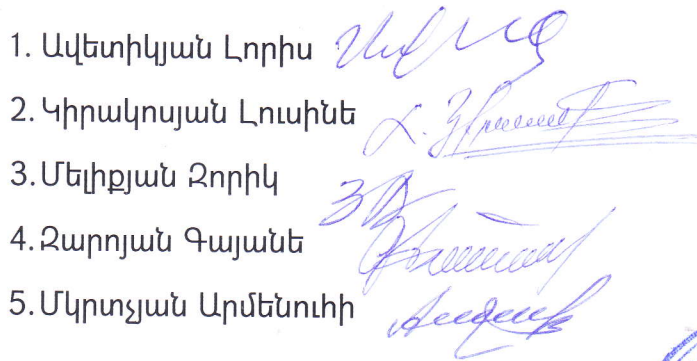 1. Ավետիկյան Լորիս
2. Կիրակոսյան Լուսինե
3. Մելիքյան Զորիկ
4. Զարոյան Գայանե
5. Մկրտչյան Արմենուհի